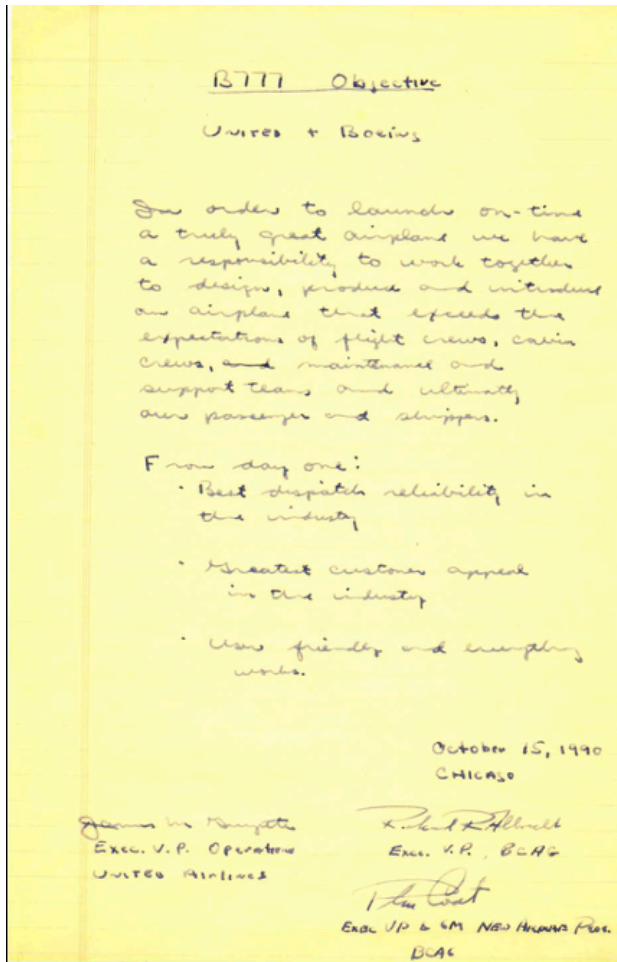 B777 Objective
United + Boeing
In order to launch on-time
a truly great airplane we have
a responsibility to work together
to design, produce and introduce
an airplane that exceeds the
expectations of flight crews, cabin
crews, and maintenance and
support teams and ultimately
our passenger and shippers.
From day one:
· Best dispatch reliability in
the industry
· Greatest customer appeal
in the industry
· User friendly and everything
works.
October 15, 1990
CHICAGO
James M Guyette
Exec. V.P. Operations
UNITED AIRLINES
Richard R Albrecht
Exec. V.P., BCAG
Phil Condit
Exec VP & GM New Airplane Prog.
BCAG